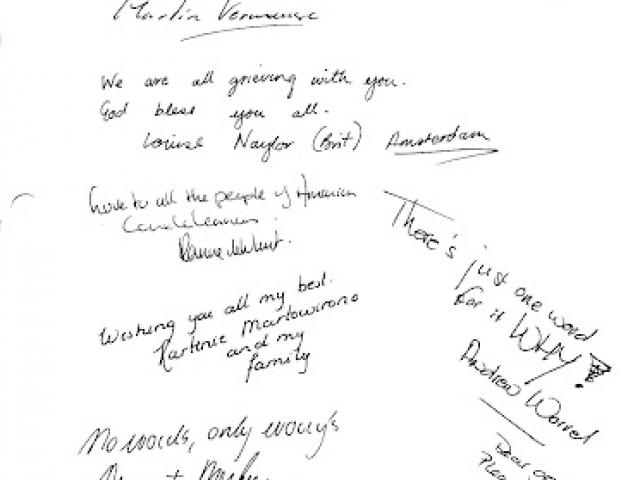 Martin
We are all grieving with you.
God bless you all.
Louise Naylor (Brit) Amsterdam
Love to all the people of America
Wishing you all my best.
Martowirono
and my
family
No words, only worry's
There's just one word
for it WHY?
Andrew Worrel
Dear